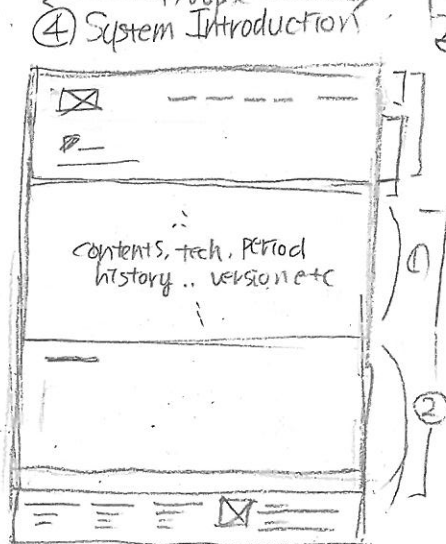 ④ System Introduction
contents, tech, period
history .. version etc
①
②